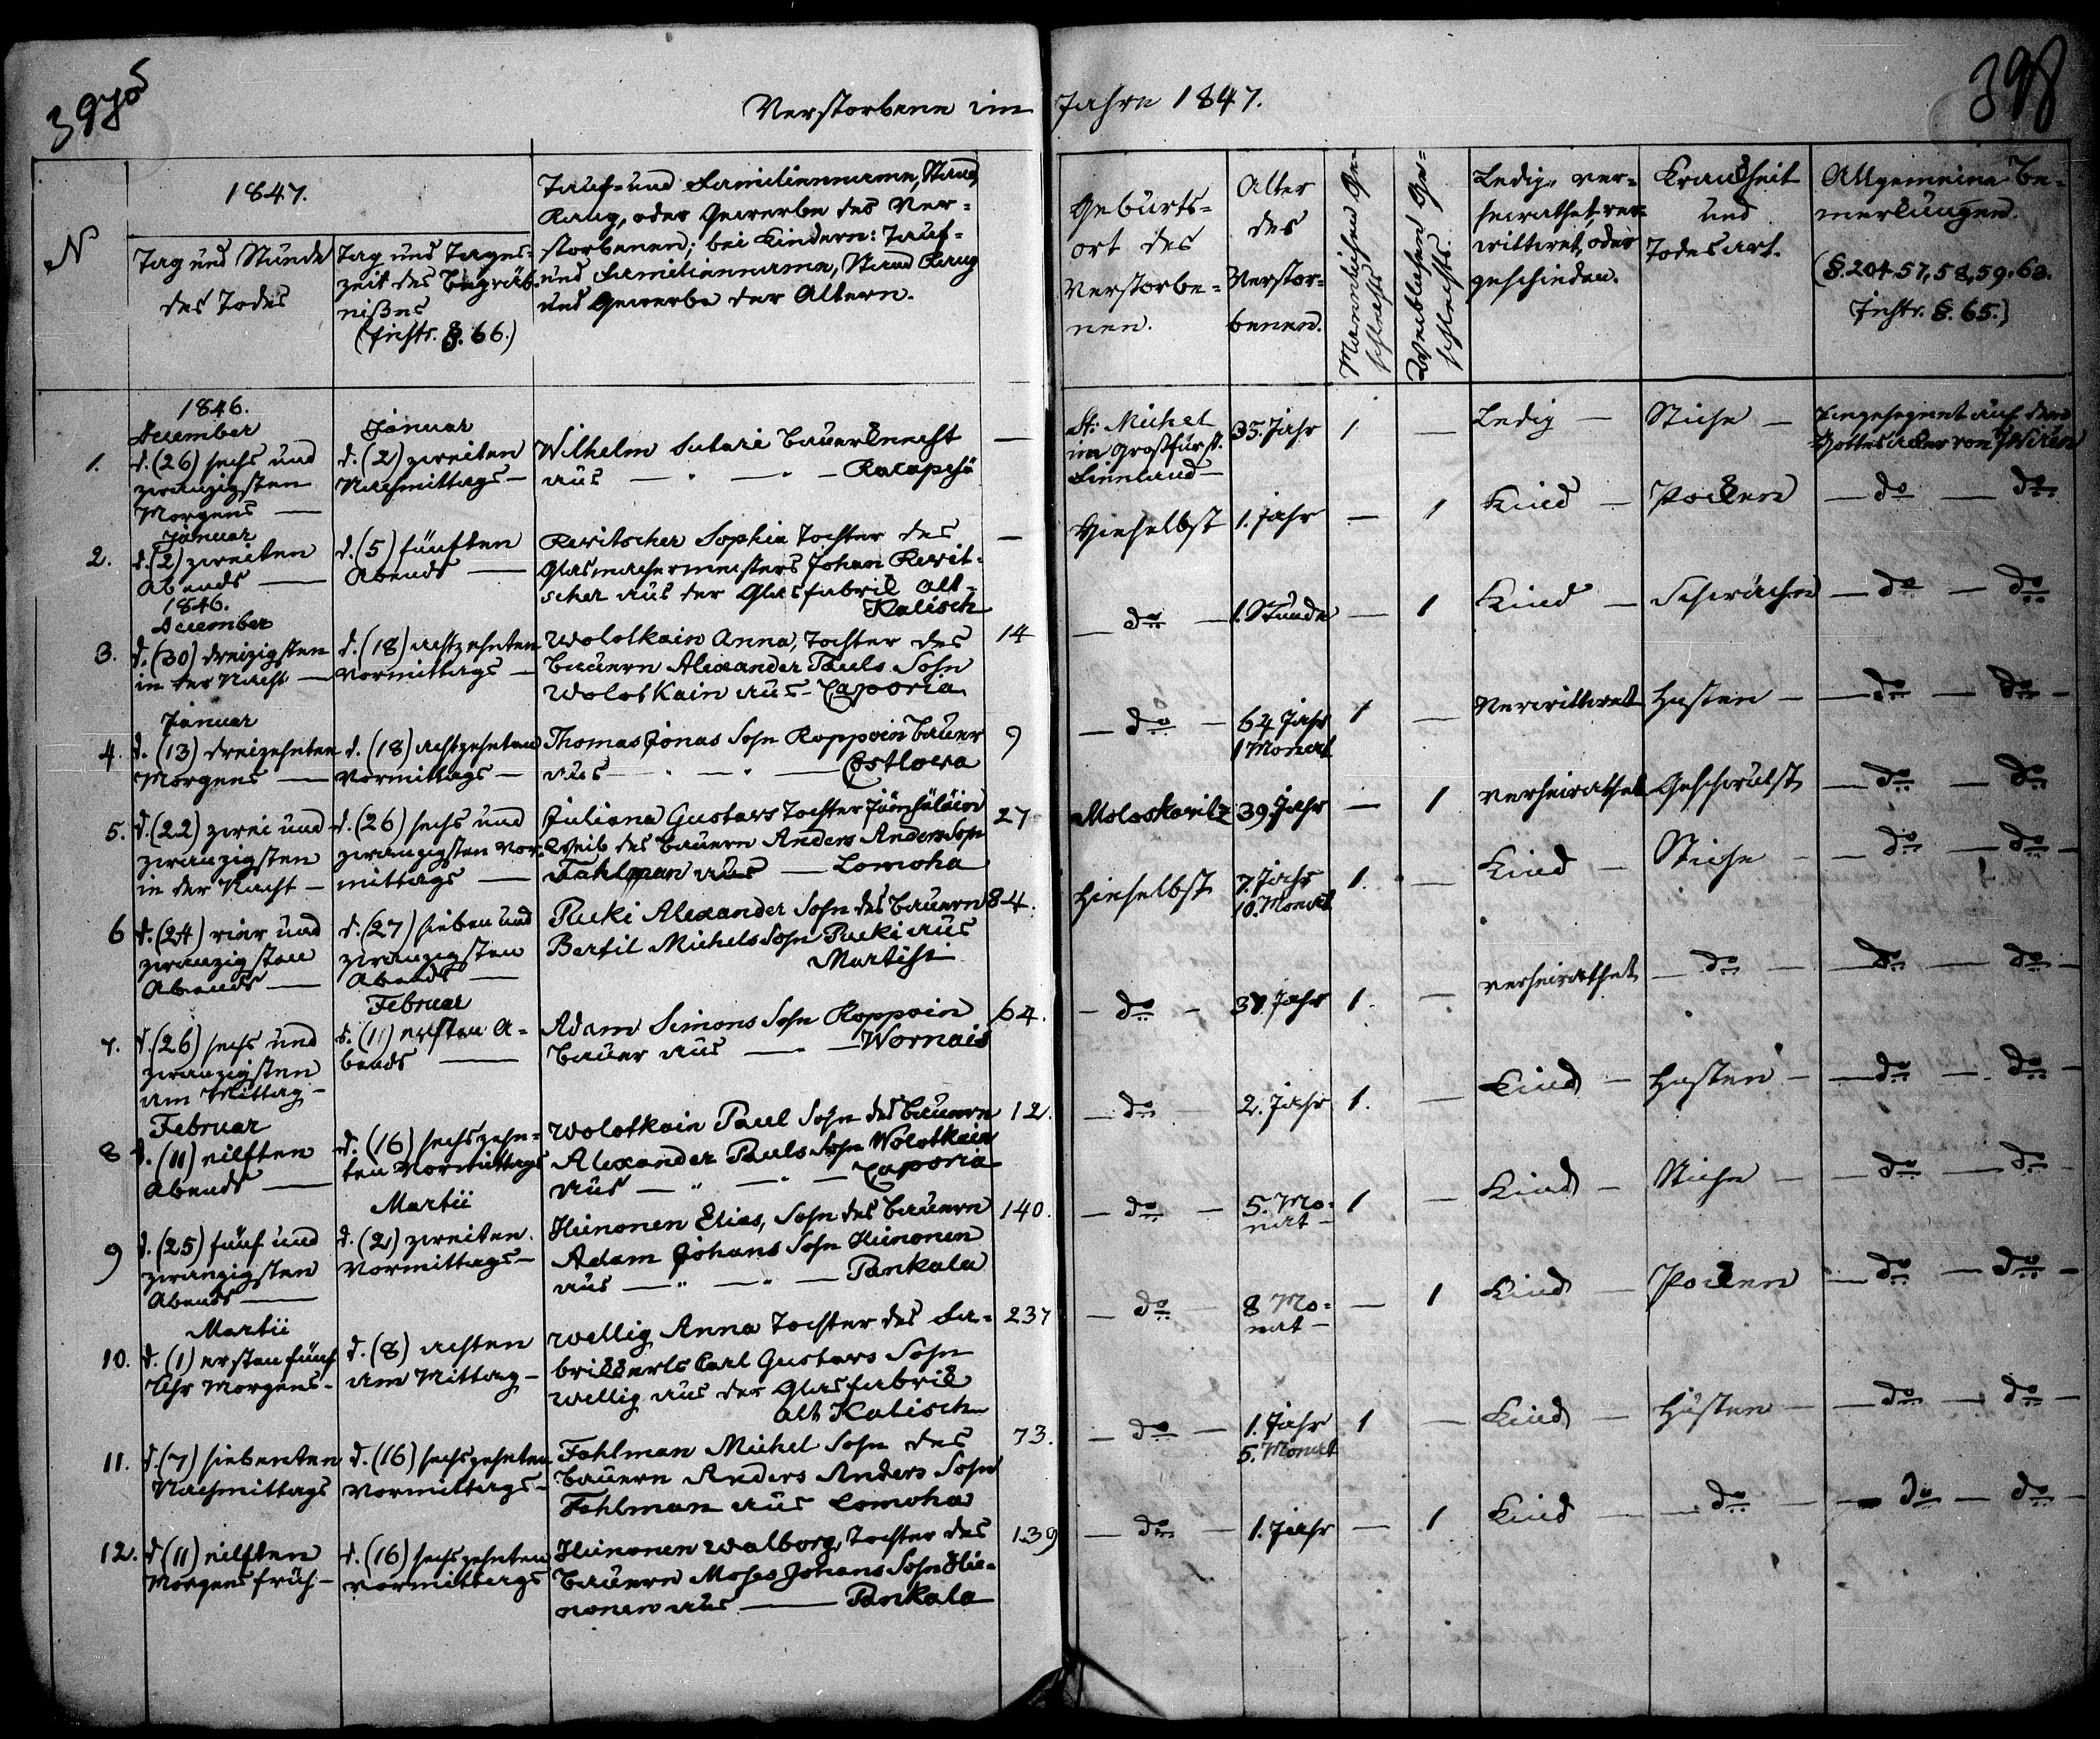 3975
398
Verstorbene im Jahre 1847.
N
1847.
Tag und Stunde
des Todes
Tag und Tages-
zeit des Begräb-
nißes
(Instr. §. 66.)
Tauf- und Familiennamen, Stand
Rang, oder Gewerbe des Ver-
storbenen; bei Kindern: Tauf-
und Familiennamen, Stand Rang
und Gewerbe der Altern.
Geburts-
ort des
Verstorbe-
nen.
Alter
des
Verstor-
benen.
Männlichen Ge-
schlechts
Weiblichen Ge-
schlechts.
Ledig, ver-
heirathet, ver-
wittwet, oder
geschieden.
Krankheit
und
Todesart.
Allgemeine Be-
merkungen.
(§. 204 57, 58, 59. 60.
Instr. §. 65.)
1846.
December
1. d. (26) sechs und
zwanzigsten
Morgens —
Januar
d. (2) zweiten
Nachmittags —
Wilhelm Sutari Bauerknecht —
aus — " — " —
St: Michel
im Großfürst.
Finnland —
35. Jahr
1
—
Ledig —
Stiche —
Eingesegnet auf dem
Gottesacker von
Januar
2. d. (2) zweiten
Abends —
d. (5) fünften
Abends —
Rewitscher Sophia Tochter des —
Glasmachermeisters Johan Rewit-
scher aus der Glasfabrik Alt-
Kalisch
Hieselbst
1. Jahr
—
1
Kind —
Pocken
— do — do
1846.
December
3. d. (30) dreizigsten
in der Nacht —
d. (18) achtzehnten
Vormittags —
Wolotkain Anna, Tochter des 14
Bauern Alexander Pauls Sohn
Wolotkain aus — Caporia
— do —
1. Stunde
—
1
Kind —
Schwäche
— do — do
Januar
4. d. (13) dreizehnten
Morgens —
d. (18) achtzehnten
Vormittags —
Thomas Jonas Sohn Roppoin Bauer 9
aus — " — " — Costlowa
— do —
64 Jahr
1 Monat
1
—
Verwittwet
Husten —
— do — do —
5. d. (22) zwei und
zwanzigsten
in der Nacht —
d. (26) sechs und
zwanzigsten Vor-
mittags —
Juliana Gustavs Tochter 27
Weib des Bauern Anders Anders Sohn
Fahlman aus — Lomoha
Moloskovitz
39. Jahr
—
1
verheirathet
Geschwulst
— do — do
6 d. (24) vier und
zwanzigsten
Abends —
d. (27) sieben und
zwanzigsten
Abends —
Pucki Alexander Sohn des Bauern 84.
Bertil Michels Sohn Pucki aus
Martisi
Hieselbst
7. Jahr
10. Monat
1.
—
Kind —
Stiche —
— do — do —
7. d. (26) sechs und
zwanzigsten
am Mittag —
Februar
d. (1) ersten A-
bends —
Adam Simons Sohn Roppoin 64.
Bauer aus — " — Wornais
— do —
Jahr
1.
—
verheirathet
— do —
— do — do —
Februar
8 d. (11) eilften
Abends —
d. (16) sechszehn-
ten Vormittags
Wolotkain Paul Sohn des Bauern 12.
Alexander Pauls Sohn Wolotkain
aus — " — " — Caporia
— do —
2. Jahr
1.
—
Kind —
Husten —
— do — do —
9 d. (25) fünf und
zwanzigsten
Abends —
Martii
d. (2) zweiten
Vormittags —
Hinonen Elias, Sohn des Bauern 140.
Adam Johans Sohn Hinonen
aus — " — " — Pankala
— do —
5. Mo-
nat —
1
—
Kind —
Stiche —
— do — do —
Martii
10. d. (1) ersten fünf
Uhr Morgens —
d. (8) achten
am Mittag —
Wellig Anna Tochter des Fa- 237
brikkerls Carl Gustavs Sohn
Wellig aus der Glasfabrik
Alt Kalisch
— do —
8 Mo-
nat —
—
1
Kind —
Pocken
— do — do —
11. d. (7) siebenten
Nachmittags
d. (16) sechszehnten
Vormittags —
Fahlman Michel Sohn des 73.
Bauern Anders Anders Sohn
Fahlman aus Lomoha
— do —
1. Jahr
5. Monat
1
—
Kind —
Husten —
— do — do —
12. d (11) eilften
Morgens früh —
d. (16) sechszehnten
Vormittags
Hinonen Walborg, Tochter des 139
Bauern Moses Johans Sohn Hie-
nonen aus — Pankala
— do —
1. Jahr
—
1
Kind —
— do —
— do — do —